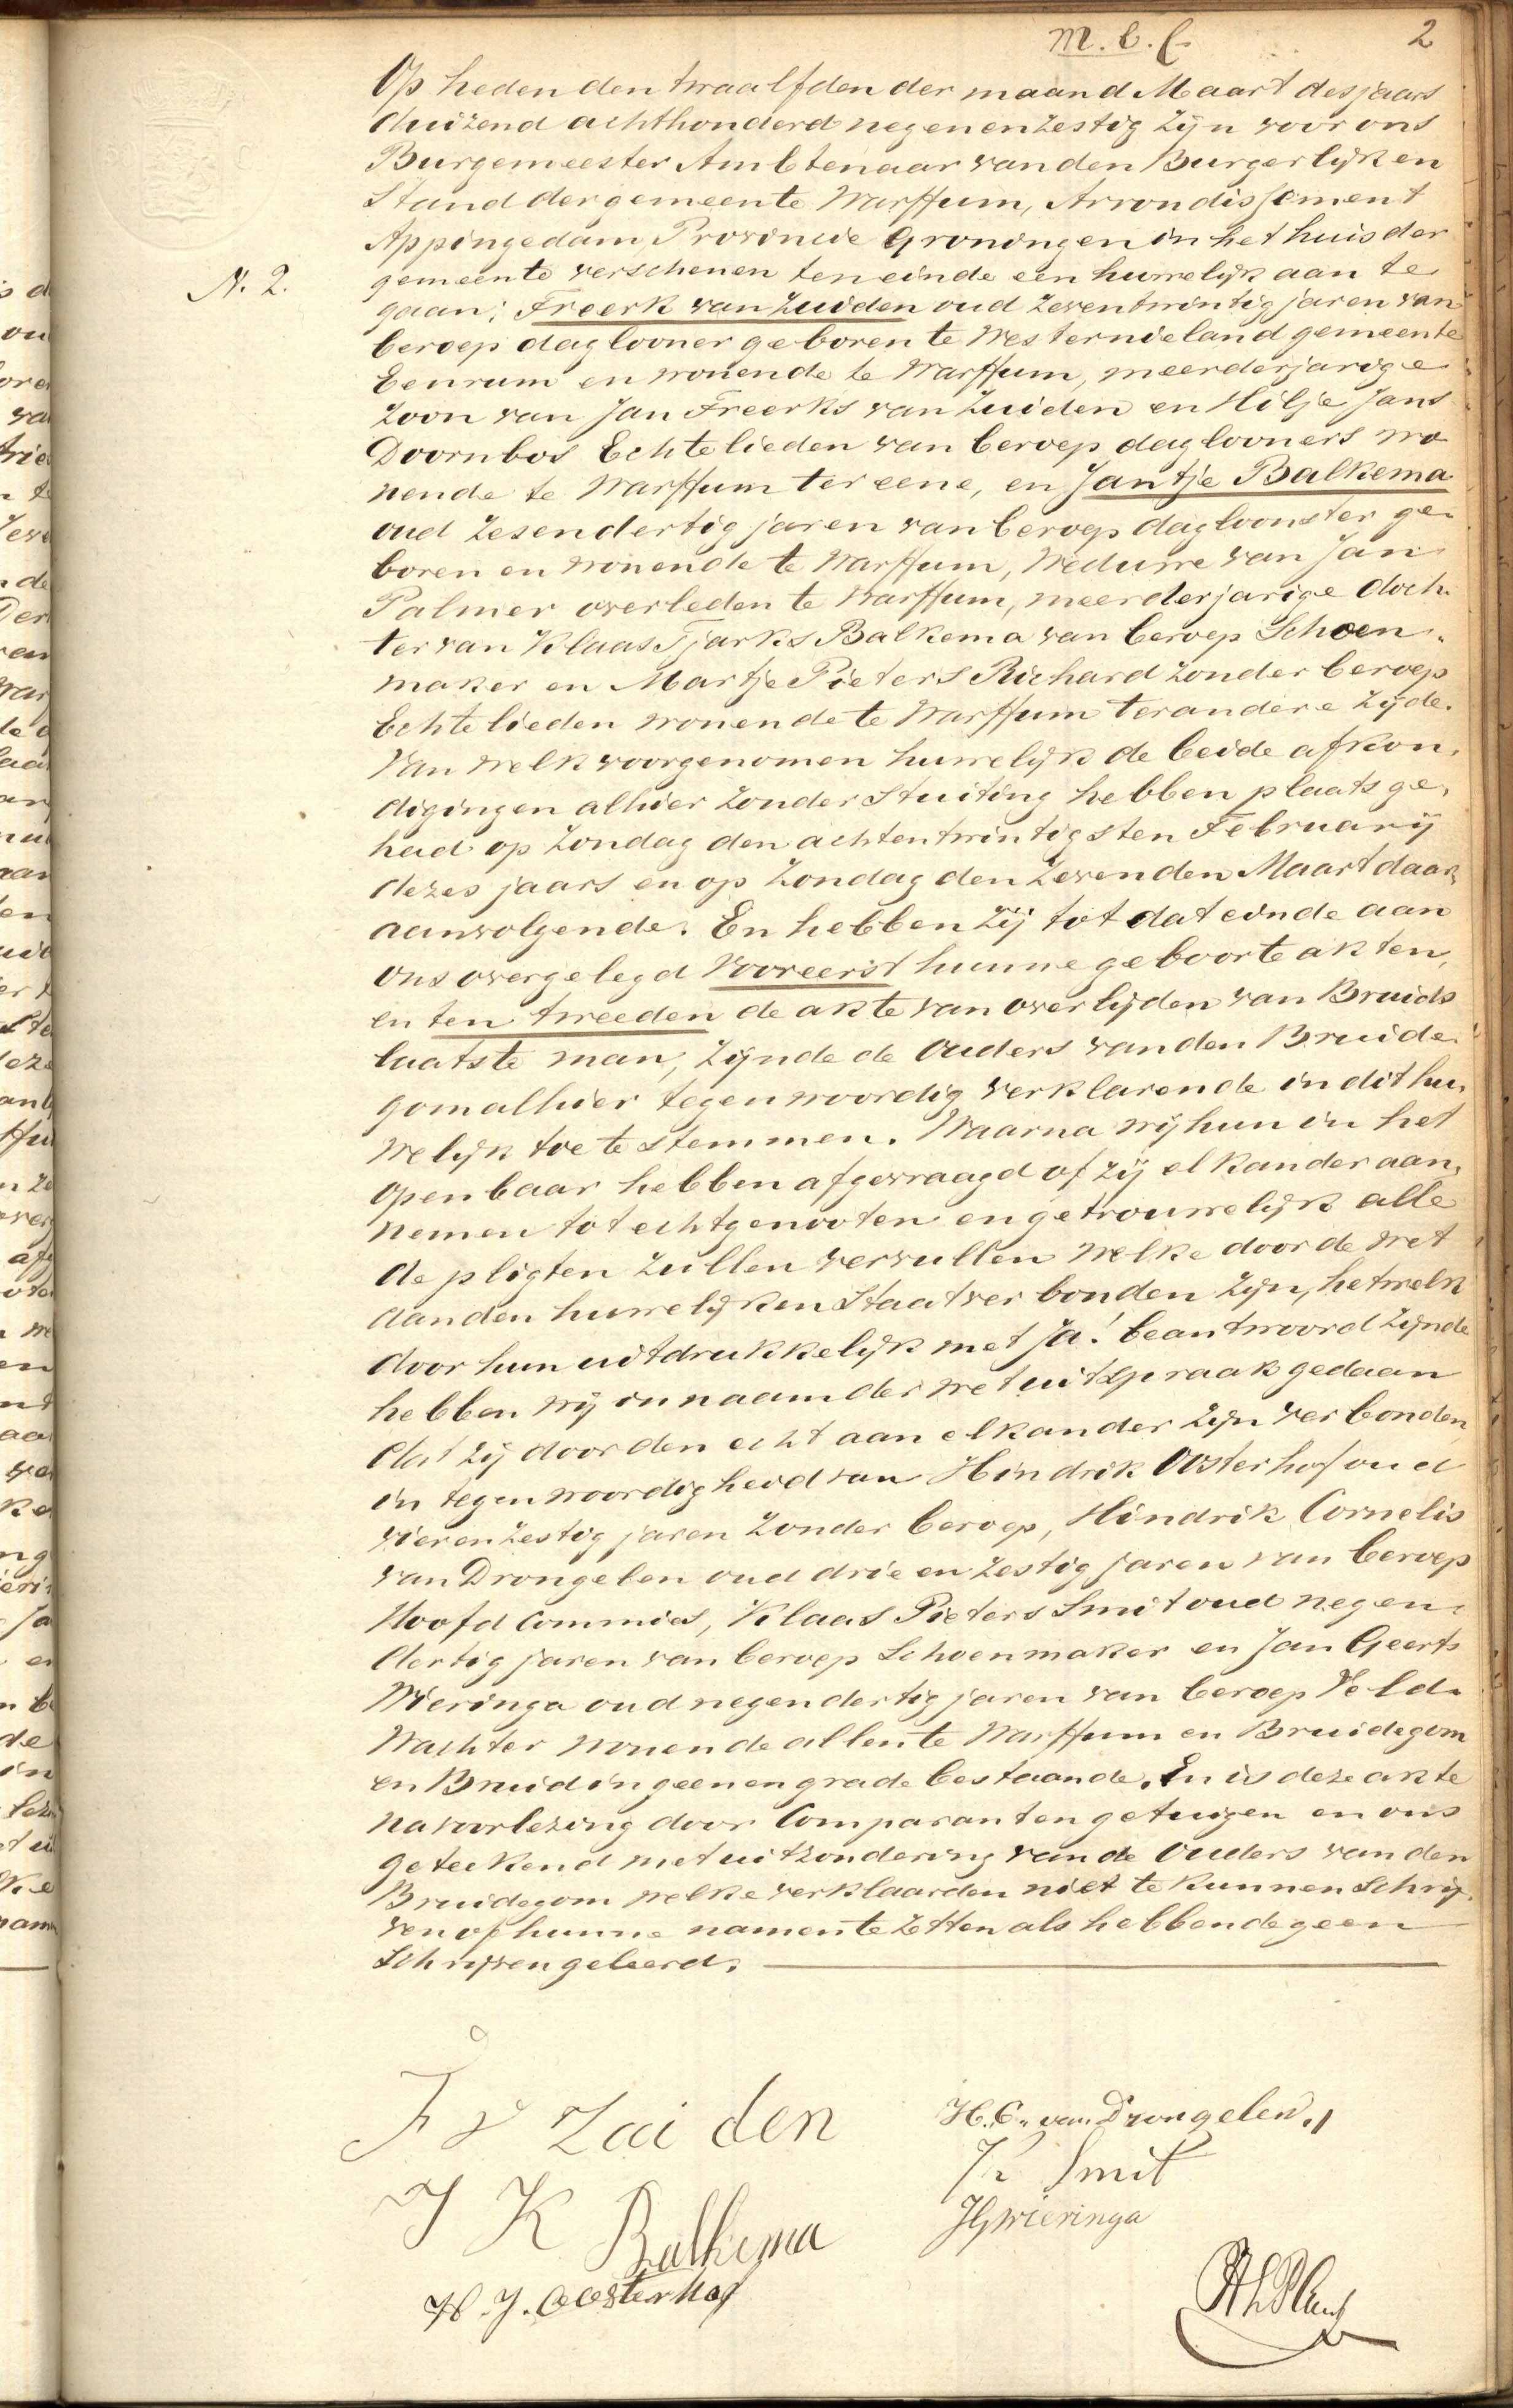 M. b. f. 2
Op heden den twaalfden der maand Maart des jaars
duizend achthonderd negenenzestig zijn voor ons
Burgemeester Ambtenaar van den Burgerlijken
Stand der gemeente Warffum, Arrondissement
Appingedam, Provincie Groningen in het huis der
N. 2. gemeente verschenen ten einde een huwelijk aan te
gaan; Freerk van Zuiden oud zeventwintig jaren van
beroep daglooner geboren te Westernieland gemeente
Eenrum en wonende te Warffum, meerderjarige
zoon van Jan Freerks van Zuiden en Hilje Jans
Doornbos Echtelieden van beroep daglooners wo
nende te Warffum ter eene, en Jantje Balkema
oud zesendertig jaren van beroep dagloonster ge-
boren en wonende te Warffum, Weduwe van Jan
Palmer overleden te Warffum, meerderjarige doch-
ter van Klaas Tjarks Balkema van beroep Schoen-
maker en Martje Pieters Richard zonder beroep
Echtelieden wonende te Warffum ter andere zijde.
Van welk voorgenomen huwelijk de beide afkon-
digingen alhier zonder Stuiting hebben plaats ge-
had op Zondag den achtentwintigsten Februarij
dezes jaars en op Zondag den Zevenden Maart daar-
aanvolgende. En hebben zij tot dat einde aan
ons overgelegd Vooreerst hunne geboorteakten,
en ten tweeden de akte van overlijden van Bruids
laatste man, zijnde de Ouders van den Bruide-
gom alhier tegenwoordig verklarende in dit hu-
welijk toe te stemmen. Waarna wij hun in het
openbaar hebben afgevraagd of zij elkander aan-
nemen tot echtgenooten en getrouwelijk alle
de pligten zullen vervullen welke door de wet
aan den huwelijken Staat verbonden zijn, hetwelk
door hun uitdrukkelijk met Ja! beantwoord zijnde
hebben wij in naam der wet uitspraak gedaan
dat zij door den echt aan elkander zijn verbonden
in tegenwoordigheid van Hindrik Oosterhof oud
vierenzestig jaren zonder beroep, Hindrik Cornelis
van Drongelen oud drieenzestig jaren van beroep
Hoofd Commies, Klaas Pieters Smit oud negen-
dertig jaren van beroep Schoenmaker en Jan Geerts
Wieringa oud negendertig jaren van beroep Veld-
wachter wonende allen te Warffum en Bruidegom
en Bruid in geenen grade bestaande. En is deze akte
na voorlezing door Comparanten getuigen en ons
geteekend met uitzondering van de Ouders van den
Bruidegom welke verklaarden niet te kunnen Schrij-
ven of hunne namen te zetten als hebbende geen
Schrijven geleerd.
F v Zuiden
H. C. van Drongelen
J K Balkema
K Smit
JG Wieringa
H. J. Oosterhof